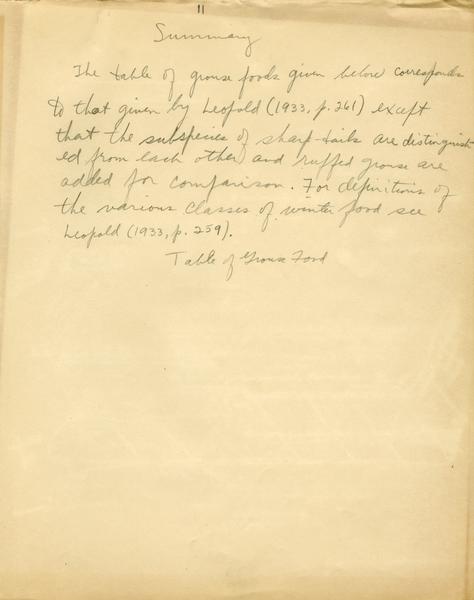 11
Summary
The table of grouse foods given below corresponds
to that given by Leopold (1933, p. 261) except
that the subspecies of sharp-tails are distinguish-
ed from each other and ruffed grouse are
added for comparison. For definitions of
the various classes of winter food see
Leopold (1933, p. 259).
Table of Grouse Food